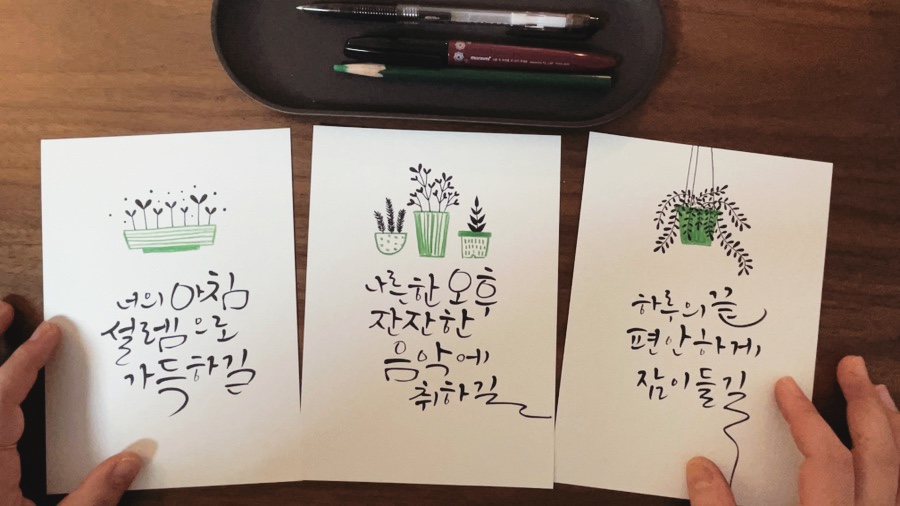 너의 아침
설렘으로
가득하길
나른한 오후
잔잔한
음악에
취하길
하루의 끝
편안하게
잠이 들길